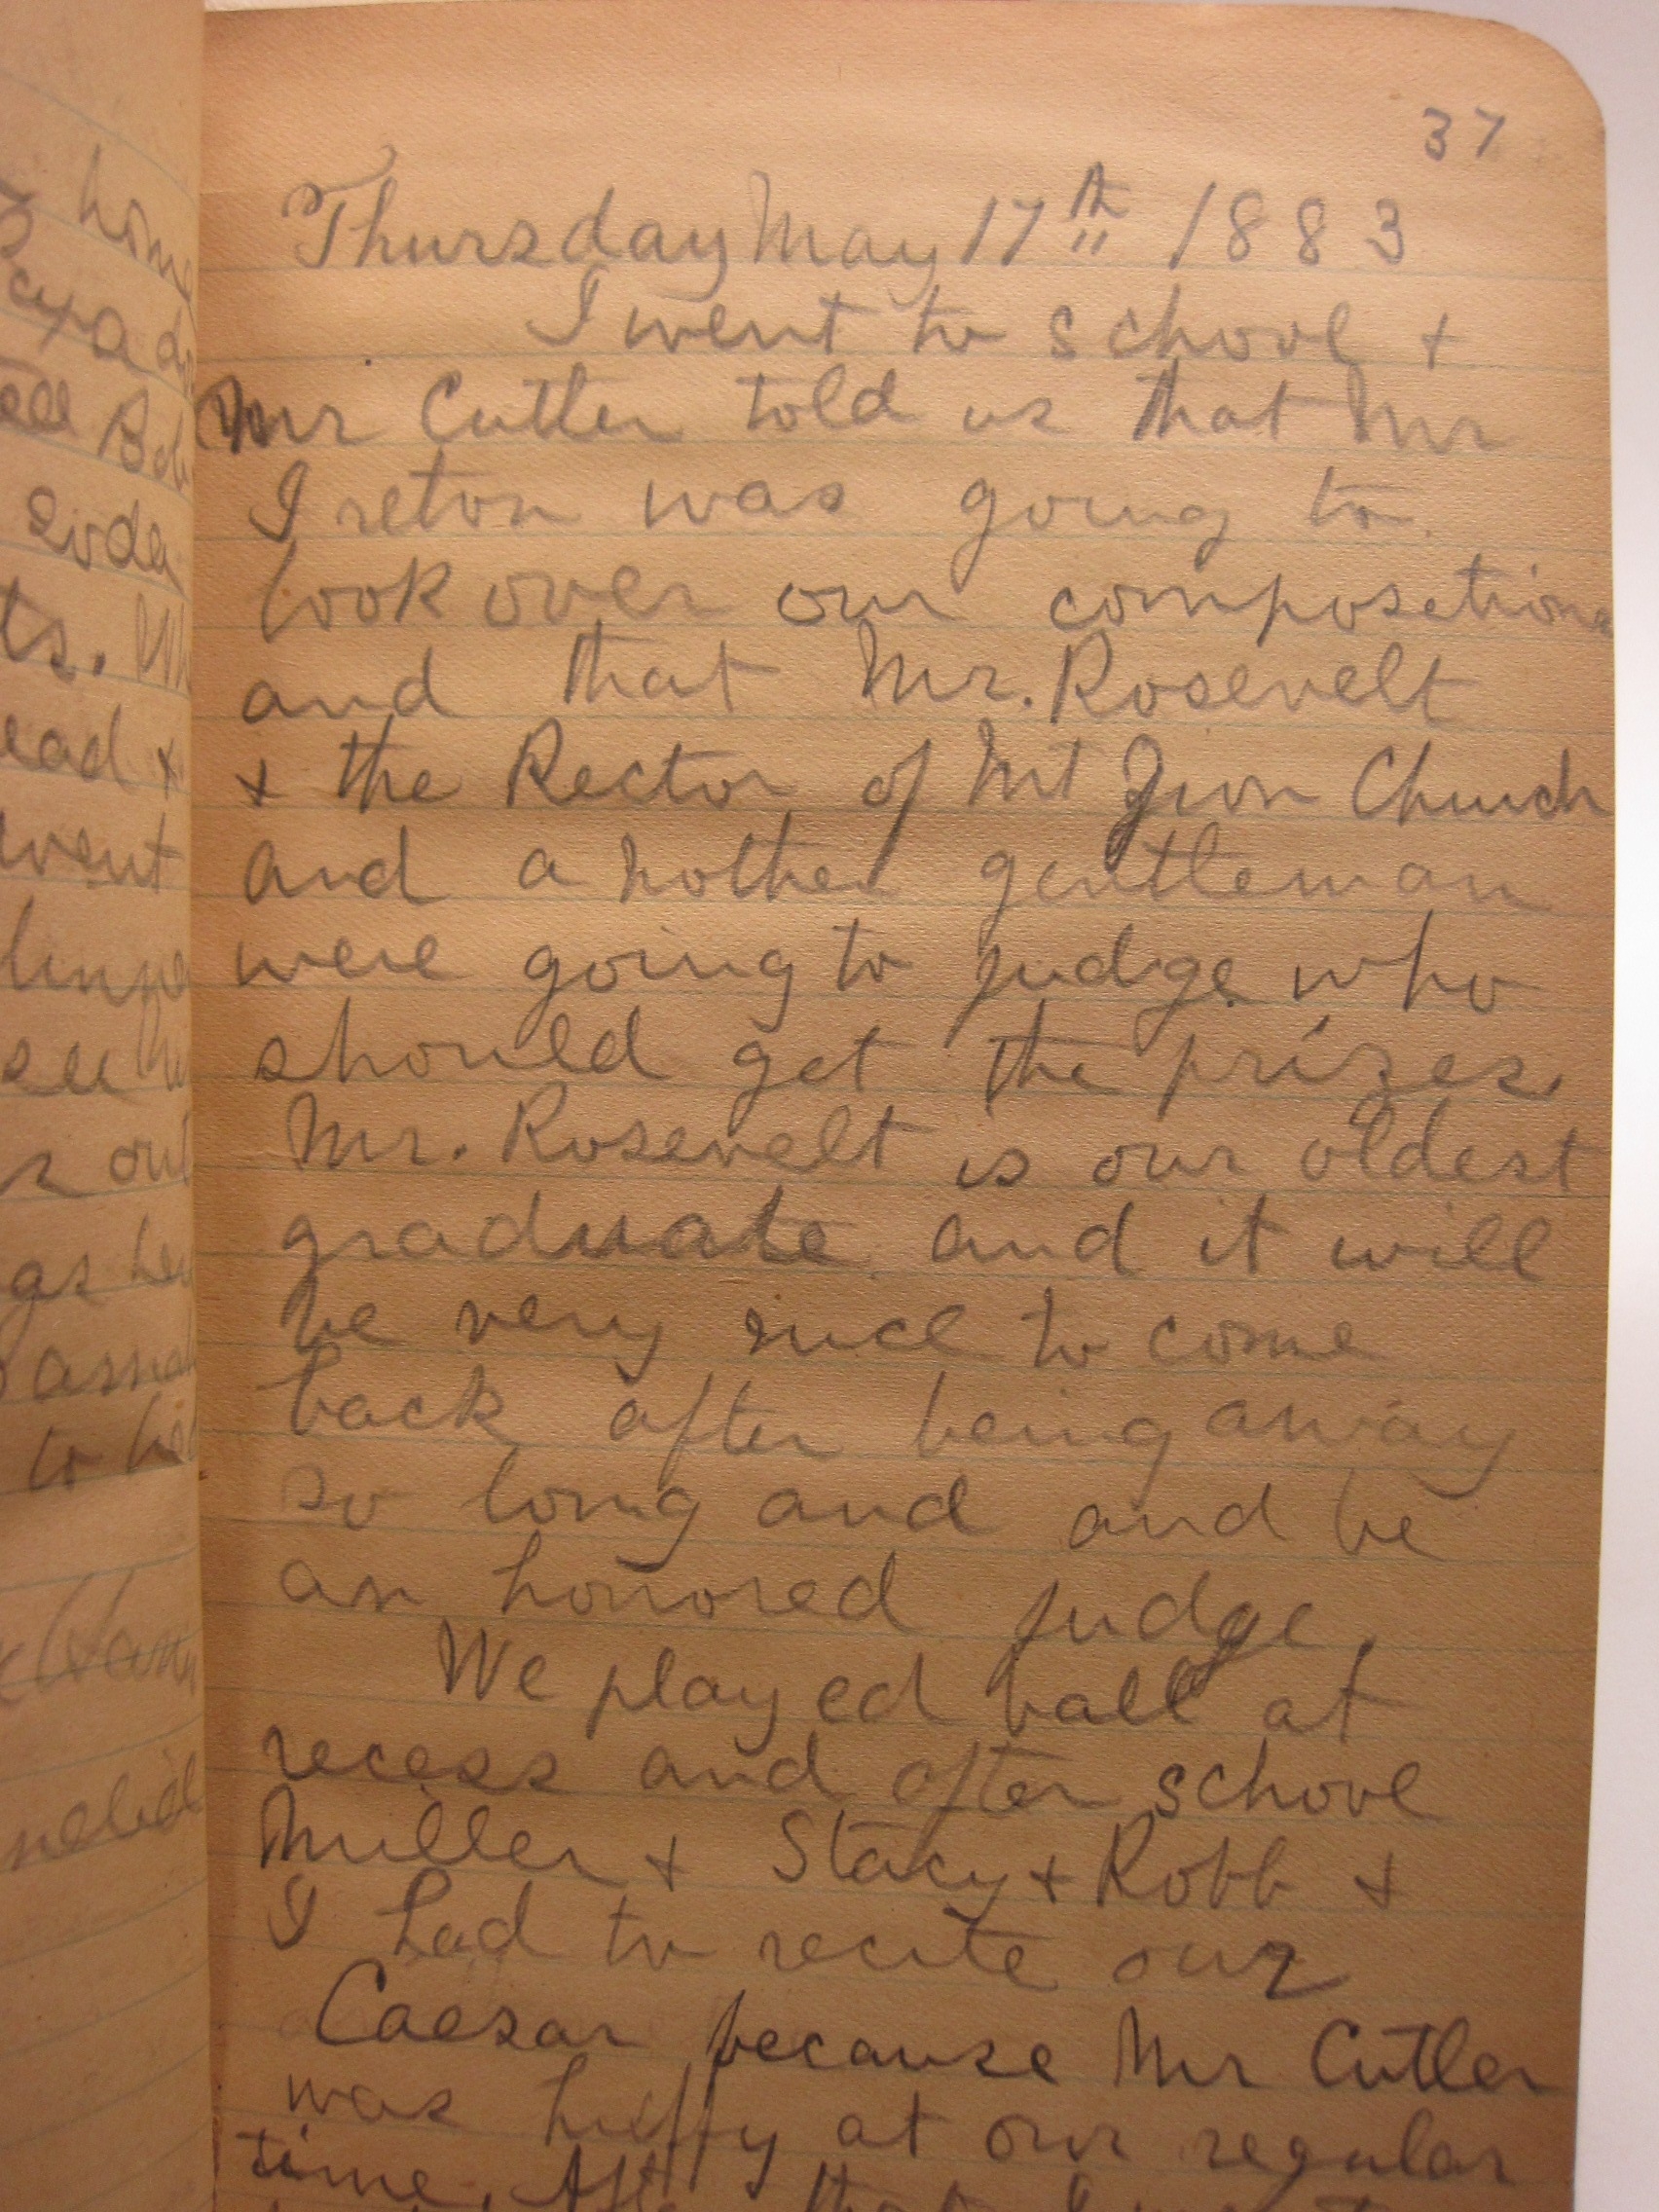 home
ts.
went
see
out
to
37
Thursday May 17th 1883
I went to school +
Mr Cutler told us that Mr
Ireton was going to
look over our compositions
and that Mr. Rosevelt
+ the Rector of Mt Zion Church
and another gentleman
were going to judge who
should get the prizes
Mr. Rosevelt is our oldest
graduate and it will
be very nice to come
back after being away
so long and and be
an honored judge.
We played ball at
recess and after school
Miller + Stacy + Robb +
I had to recite our
Caesar because Mr Cutler
was huffy at our regular
time. After that I went